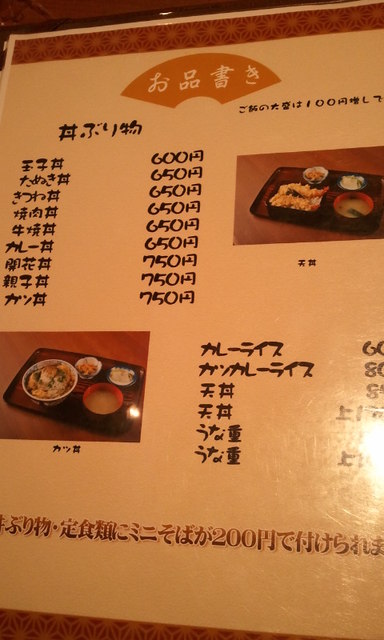 お品書き
ご飯の大盛は100円増して
丼ぶり物
玉子丼 600円
たぬき丼 650円
きつね丼 650円
焼肉丼 650円
牛焼丼 650円
カレー丼 650円
開花丼 750円
親子丼 750円
カツ丼 750円
天丼
カツ丼
カレーライス 60
カツカレーライス 80
天丼
天丼 上
うな重
うな重 上
丼ぶり物・定食類にミニそばが200円で付けられま